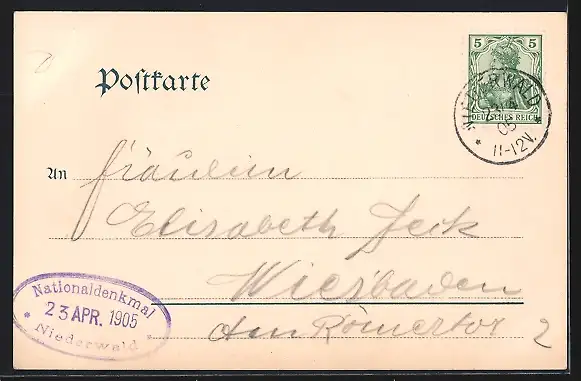 Postkarte
5 5
DEUTSCHES REICH
NIEDERWALD
23.4.
05
* 11-12V. *
An Fräulein
Elisabeth Jeck
Wiesbaden
Am Römertor 2
Nationaldenkmal
23 APR. 1905
* Niederwald *